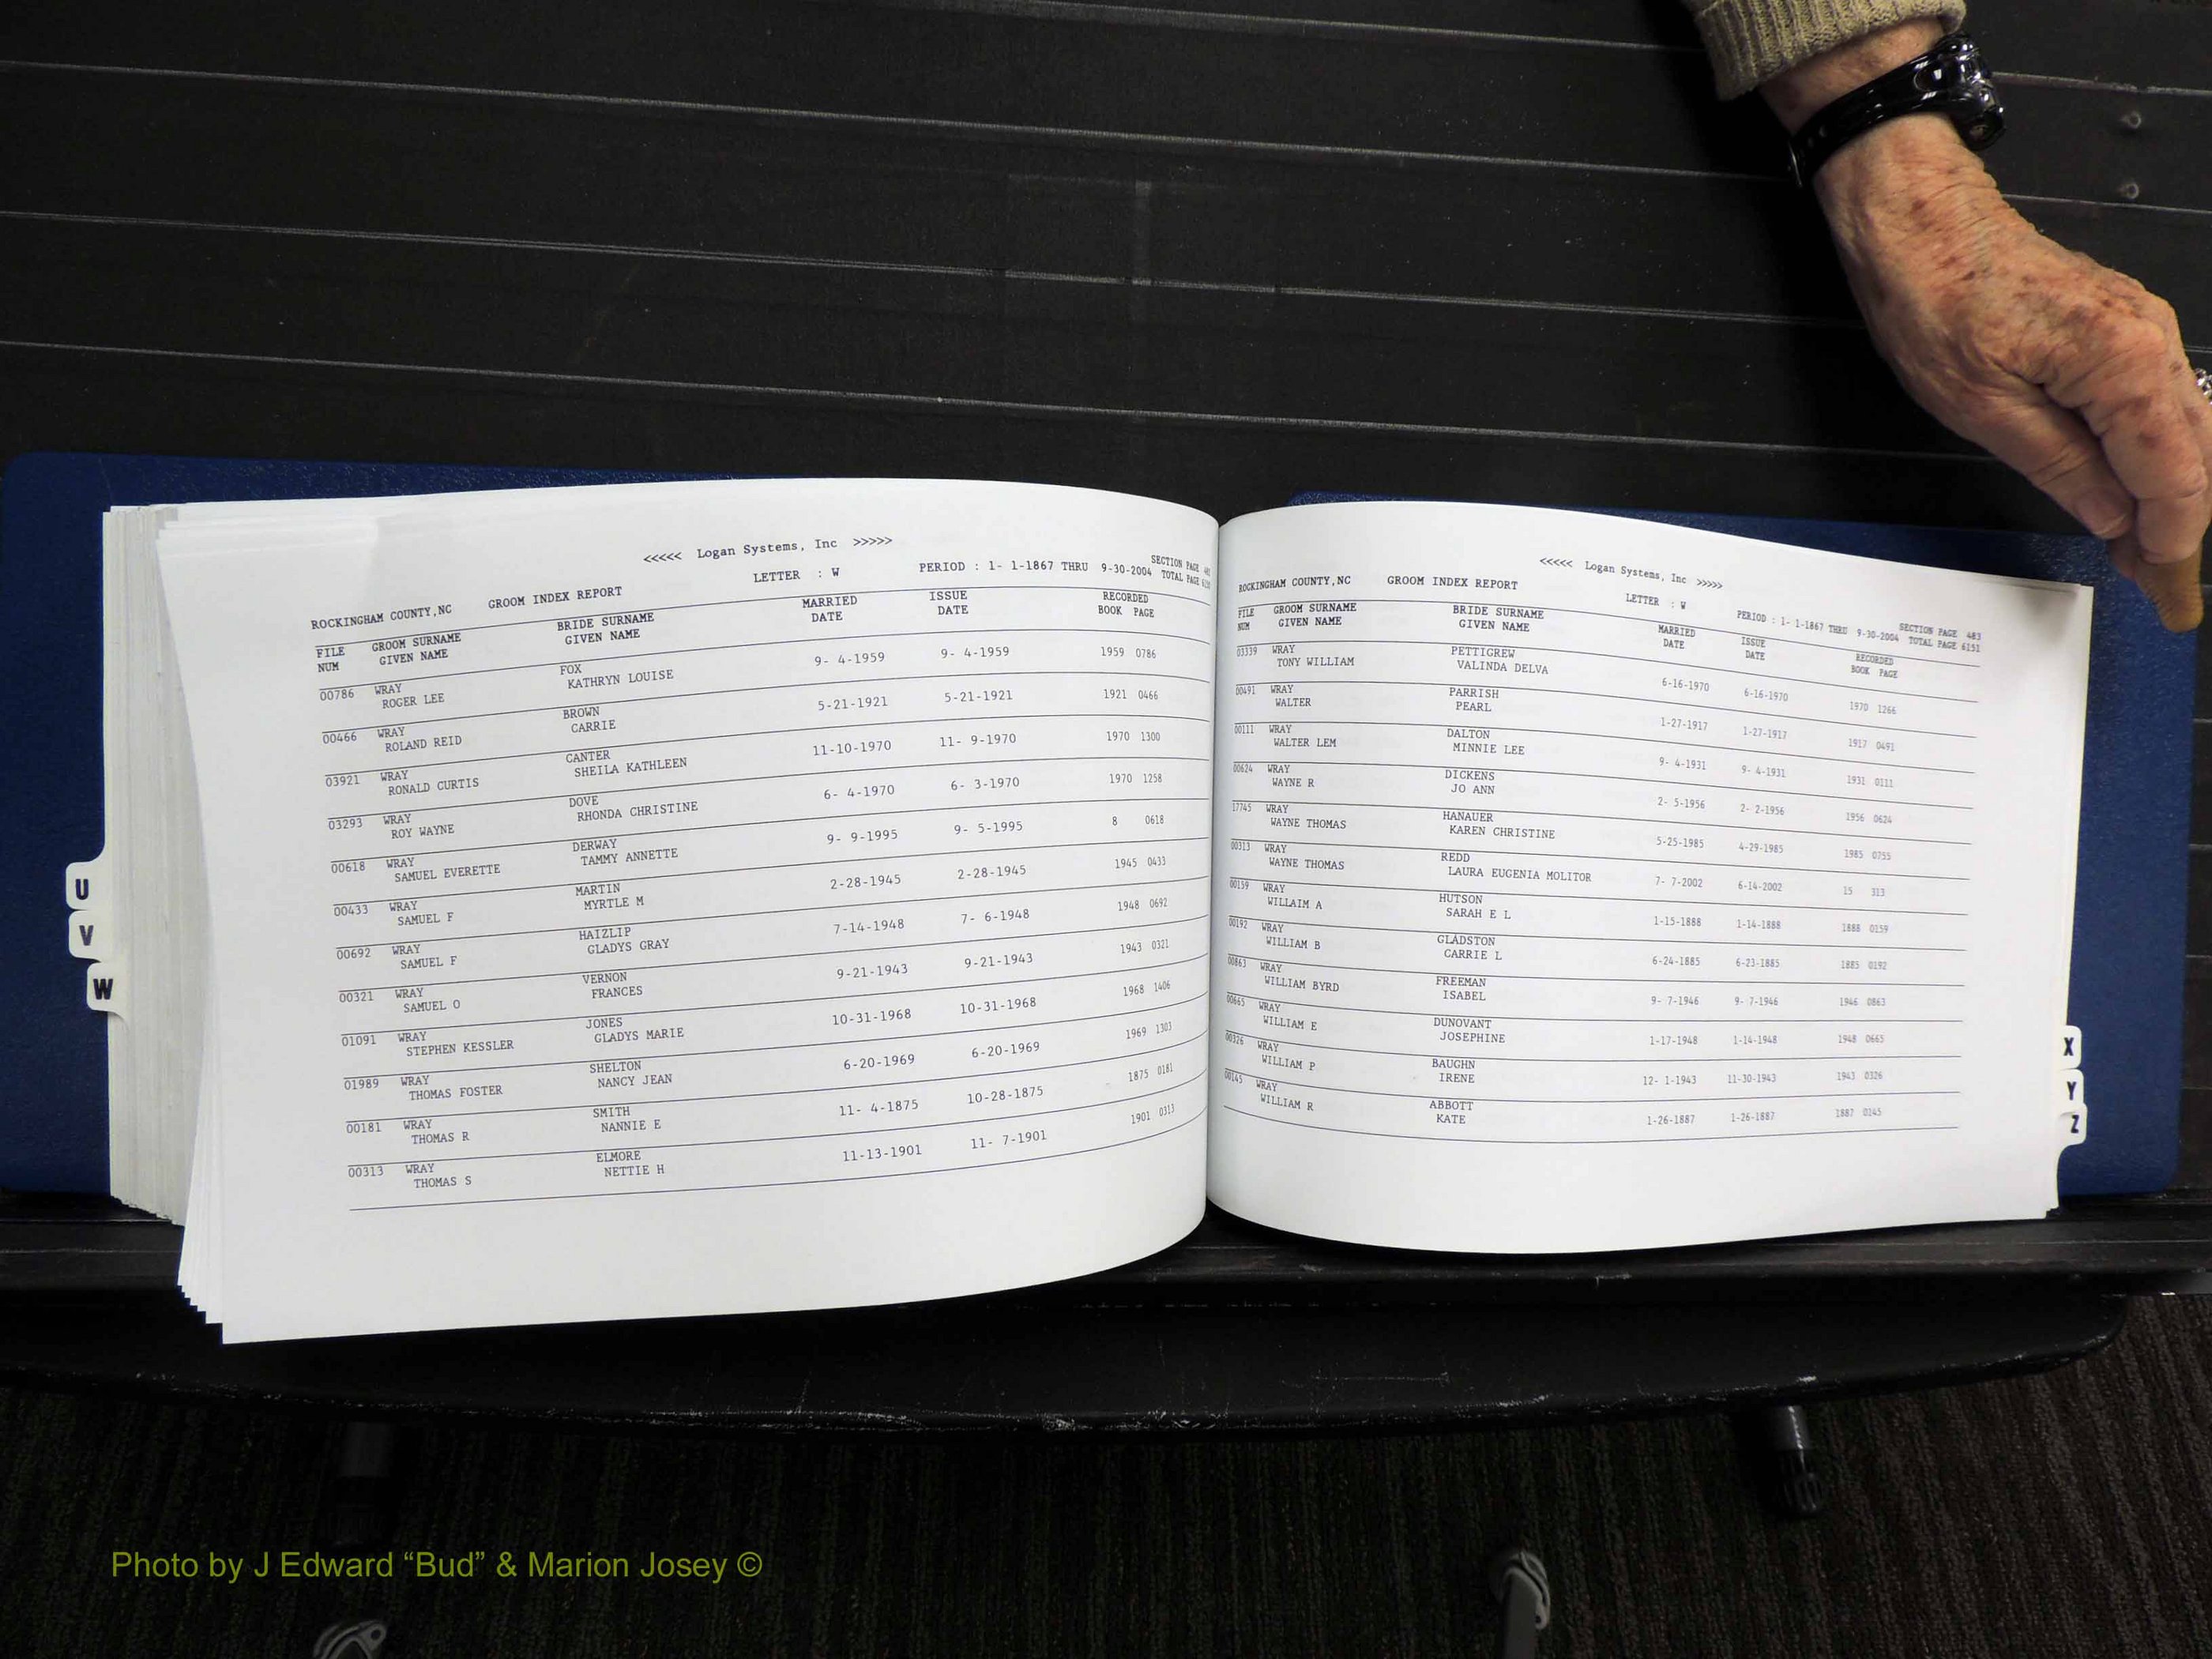 <<<<< Logan Systems, Inc >>>>>
ROCKINGHAM COUNTY,NC GROOM INDEX REPORT LETTER : W PERIOD : 1- 1-1867 THRU 9-30-2004 SECTION PAGE
TOTAL PAGE
FILE GROOM SURNAME BRIDE SURNAME MARRIED ISSUE RECORDED
NUM GIVEN NAME GIVEN NAME DATE DATE BOOK PAGE
00786 WRAY FOX 9- 4-1959 9- 4-1959 1959 0786
ROGER LEE KATHRYN LOUISE
00466 WRAY BROWN 5-21-1921 5-21-1921 1921 0466
ROLAND REID CARRIE
03921 WRAY CANTER 11-10-1970 11- 9-1970 1970 1300
RONALD CURTIS SHEILA KATHLEEN
03293 WRAY DOVE 6- 4-1970 6- 3-1970 1970 1258
ROY WAYNE RHONDA CHRISTINE
00618 WRAY DERWAY 9- 9-1995 9- 5-1995 8 0618
SAMUEL EVERETTE TAMMY ANNETTE
00433 WRAY MARTIN 2-28-1945 2-28-1945 1945 0433
SAMUEL F MYRTLE M
00692 WRAY HAIZLIP 7-14-1948 7- 6-1948 1948 0692
SAMUEL F GLADYS GRAY
00321 WRAY VERNON 9-21-1943 9-21-1943 1943 0321
SAMUEL O FRANCES
01091 WRAY JONES 10-31-1968 10-31-1968 1968 1406
STEPHEN KESSLER GLADYS MARIE
01989 WRAY SHELTON 6-20-1969 6-20-1969 1969 1303
THOMAS FOSTER NANCY JEAN
00181 WRAY SMITH 11- 4-1875 10-28-1875 1875 0181
THOMAS R NANNIE E
00313 WRAY ELMORE 11-13-1901 11- 7-1901 1901 0313
THOMAS S NETTIE H
<<<<< Logan Systems, Inc >>>>>
ROCKINGHAM COUNTY,NC GROOM INDEX REPORT LETTER : W PERIOD : 1- 1-1867 THRU 9-30-2004 SECTION PAGE 483
TOTAL PAGE 6151
FILE GROOM SURNAME BRIDE SURNAME MARRIED ISSUE RECORDED
NUM GIVEN NAME GIVEN NAME DATE DATE BOOK PAGE
03339 WRAY PETTIGREW 6-16-1970 6-16-1970 1970 1266
TONY WILLIAM VALINDA DELVA
00491 WRAY PARRISH 1-27-1917 1-27-1917 1917 0491
WALTER PEARL
00111 WRAY DALTON 9- 4-1931 9- 4-1931 1931 0111
WALTER LEM MINNIE LEE
00624 WRAY DICKENS 2- 5-1956 2- 2-1956 1956 0624
WAYNE R JO ANN
17745 WRAY HANAUER 5-25-1985 4-29-1985 1985 0755
WAYNE THOMAS KAREN CHRISTINE
00313 WRAY REDD 7- 7-2002 6-14-2002 15 313
WAYNE THOMAS LAURA EUGENIA MOLITOR
00159 WRAY HUTSON 1-15-1888 1-14-1888 1888 0159
WILLAIM A SARAH E L
00192 WRAY GLADSTON 6-24-1885 6-23-1885 1885 0192
WILLIAM B CARRIE L
00863 WRAY FREEMAN 9- 7-1946 9- 7-1946 1946 0863
WILLIAM BYRD ISABEL
00665 WRAY DUNOVANT 1-17-1948 1-14-1948 1948 0665
WILLIAM E JOSEPHINE
00326 WRAY BAUGHN 12- 1-1943 11-30-1943 1943 0326
WILLIAM P IRENE
00145 WRAY ABBOTT 1-26-1887 1-26-1887 1887 0145
WILLIAM R KATE
U
V
W
X
Y
Z
Photo by J Edward “Bud” & Marion Josey ©